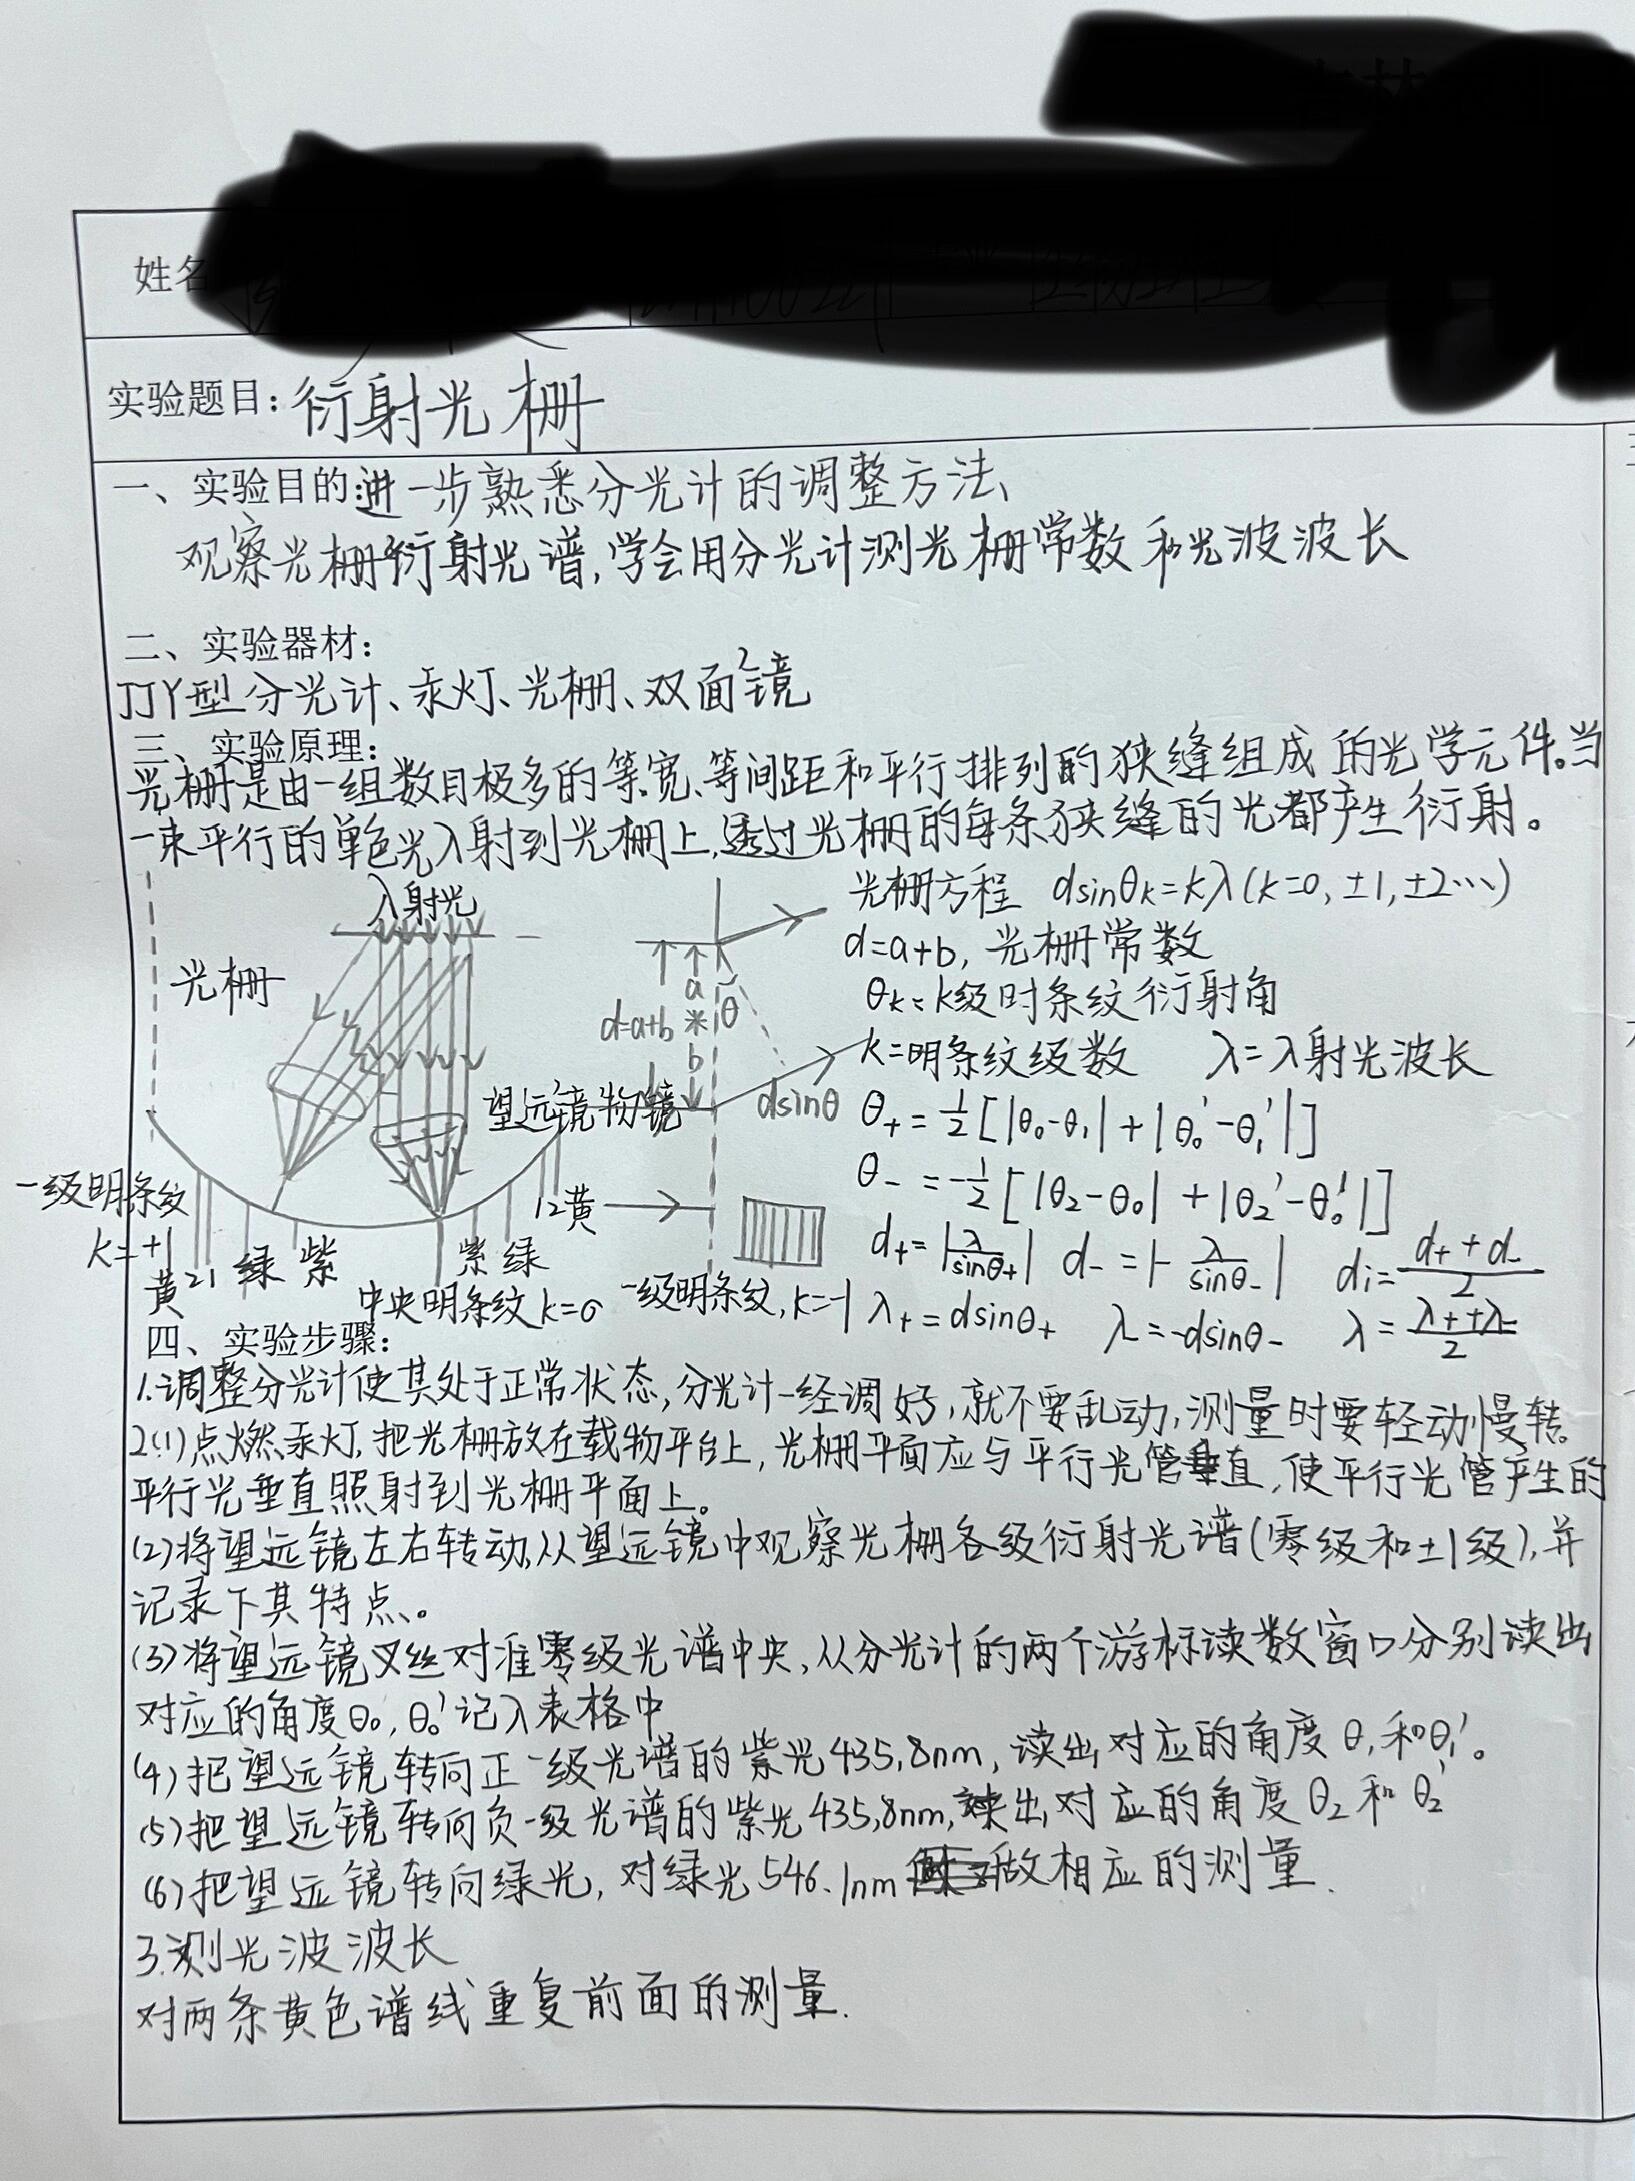 姓名
实验题目:衍射光栅
一、实验目的:进一步熟悉分光计的调整方法、
观察光栅衍射光谱,学会用分光计测光栅常数和光波波长
二、实验器材:
JJY型分光计、汞灯、光栅、双面镜
三、实验原理:
光栅是由一组数目极多的等宽、等间距和平行排列的狭缝组成的光学元件。当
一束平行的单色光入射到光栅上,透过光栅的每条狭缝的光都产生衍射。
入射光
光栅
望远镜物镜
一级明条纹
k=+1
黄21 绿 紫
中央明条纹k=0
紫 绿
12黄
一级明条纹,k=-1
a
d=a+b
b
θ
dsinθ
光栅方程 dsinθk=kλ(k=0,±1,±2…)
d=a+b,光栅常数
θk=k级时条纹衍射角
k=明条纹级数 λ=入射光波长
θ+=½[|θ0-θ1|+|θ0'-θ1'|]
θ-=-½[|θ2-θ0|+|θ2'-θ0'|]
d+=|λ/sinθ+| d-=|-λ/sinθ-| di=(d++d-)/2
λ+=dsinθ+ λ-=-dsinθ- λ=(λ++λ-)/2
四、实验步骤:
1.调整分光计使其处于正常状态,分光计一经调好,就不要乱动,测量时要轻动慢转。
2(1)点燃汞灯,把光栅放在载物平台上,光栅平面应与平行光管垂直,使平行光管产生的
平行光垂直照射到光栅平面上。
(2)将望远镜左右转动,从望远镜中观察光栅各级衍射光谱(零级和±1级),并
记录下其特点。
(3)将望远镜叉丝对准零级光谱中央,从分光计的两个游标读数窗口分别读出
对应的角度θ0,θ0'记入表格中
(4)把望远镜转向正一级光谱的紫光435.8nm,读出对应的角度θ1和θ1'。
(5)把望远镜转向负一级光谱的紫光435.8nm,读出对应的角度θ2和θ2'
(6)把望远镜转向绿光,对绿光546.1nm做相应的测量.
3.测光波波长
对两条黄色谱线重复前面的测量.